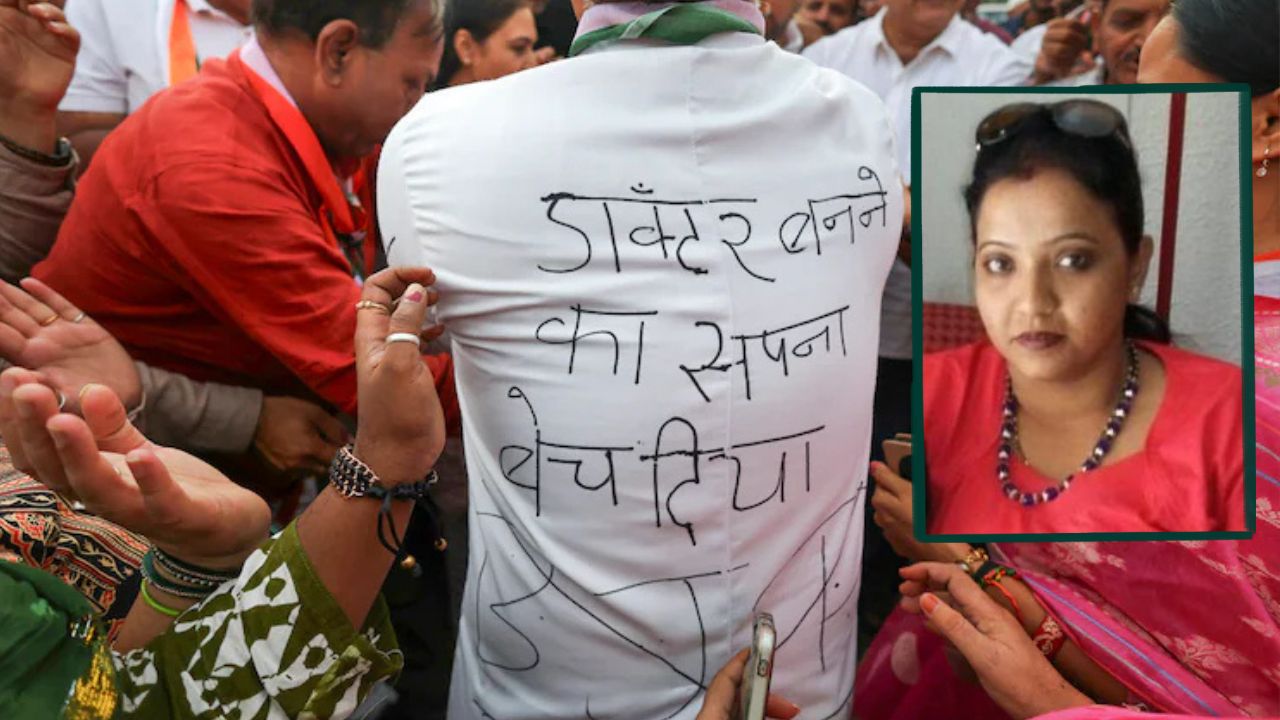 डाँक्टर बनने
का सपना
बेच दिया